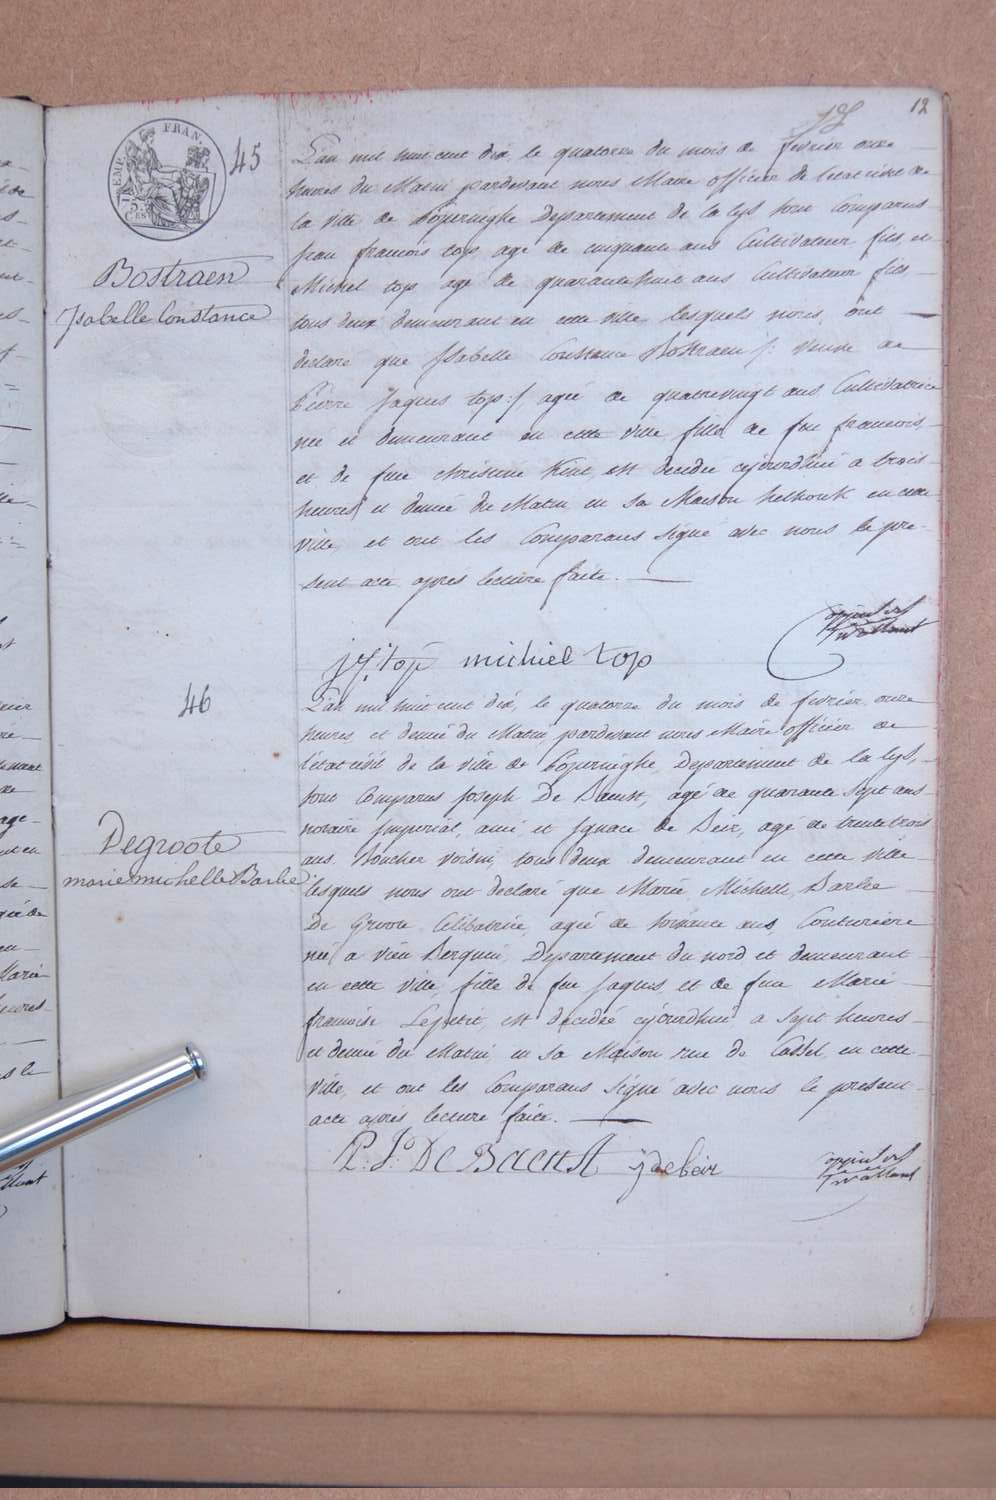 12
45
Bostraen
Isabelle Constance
L'an mil huit cent dix, le quatorze du mois de fevrier onze
heures du Matin pardevant nous Maire officier de l'etat civil de
la ville de Poperinghe Departement de la Lys sont Comparus
Jean francois top, agé de cinquante ans Cultivateur fils, et
Michel top agé de quarantehuit ans Cultivateur fils
tous deux demeurant en cette ville lesquels nous ont
declaré que Isabelle Constance Bostraen /: veuve de
Pierre Jaques top :/, agée de quatrevingt ans, Cultivatrice
née et demeurant en cette ville fille de feu francois,
et de feue christine Kint, est decedée cejourdhui a trois
heures et demie du Matin, en sa Maison helhouk en cette
ville et ont les Comparans signé avec nous le pre-
sent acte après lecture faite.
j f: top michiel top
46
Degroote
marie michelle Barbe
L'an mil huit cent dix, le quatorze du mois de fevrier, onze
heures et demie du Matin, pardevant nous Maire officier de
l'etat civil de la ville de Poperinghe, Departement de la Lys,
sont Comparus Joseph De Baenst, agé de quarante sept ans
notaire Imperial, ami, et Ignace de Beir, agé de trente trois
ans Boucher voisin, tous deux demeurant en cette ville
lesquels nous ont declaré que Marie Michelle Barbe
De Groote Celibatrice, agée de soixante ans, Couturiere
née a vieu Berquin, Departement du nord et demeurant
en cette ville, fille de feu Jaques et de feue Marie
francoise Lepetit, est decedée cejourdhui a sept heures
et demie du Matin, en sa Maison rue de Cassel, en cette
ville, et ont les Comparans signé avec nous le present
acte après lecture faite.
P. J: De Baenst j de beir